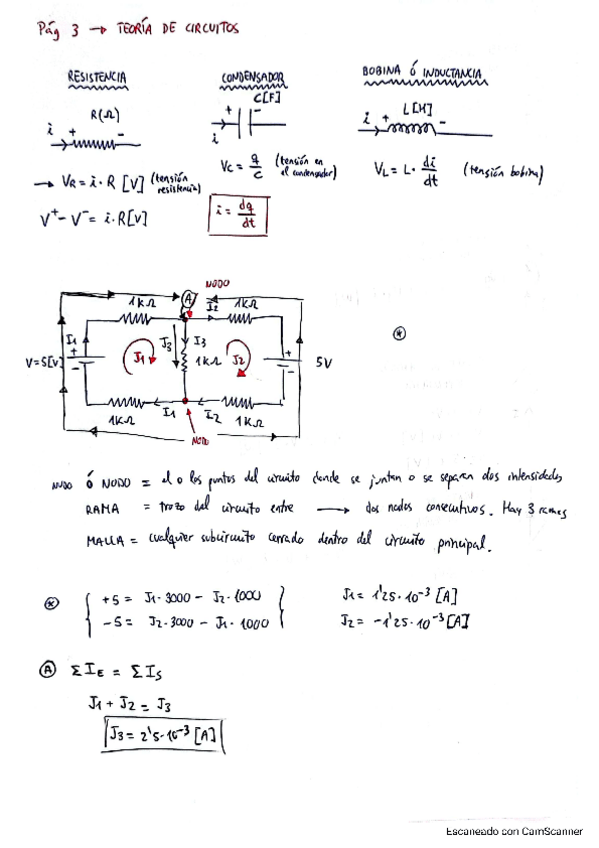 Pág 3 → TEORÍA DE CIRCUITOS
RESISTENCIA
CONDENSADOR
BOBINA Ó INDUCTANCIA
R(Ω)
C[F]
L[H]
i + -
+ - i
i + -
→ VR = i·R [V] (tensión resistencia)
Vc = q/c (tensión en el condensador)
VL = L· di/dt (tensión bobina)
V⁺ - V⁻ = i·R[V]
i = dq/dt
NODO
1kΩ A I2 1kΩ
I1 J3 I3
V=5[V] + - J1 1kΩ J2 + - 5V
1kΩ I1 I2 1kΩ
NODO
NUDO ó NODO = el o los puntos del circuito donde se juntan o se separan dos intensidades
RAMA = trozo del circuito entre → dos nodos consecutivos. Hay 3 ramas
MALLA = cualquier subcircuito cerrado dentro del circuito principal.
+5 = J1·3000 - J2·1000
-5 = J2·3000 - J1·1000
J1 = 1'25·10⁻³ [A]
J2 = -1'25·10⁻³ [A]
A ΣIE = ΣIS
J1 + J2 = J3
J3 = 2'5·10⁻³ [A]
Escaneado con CamScanner